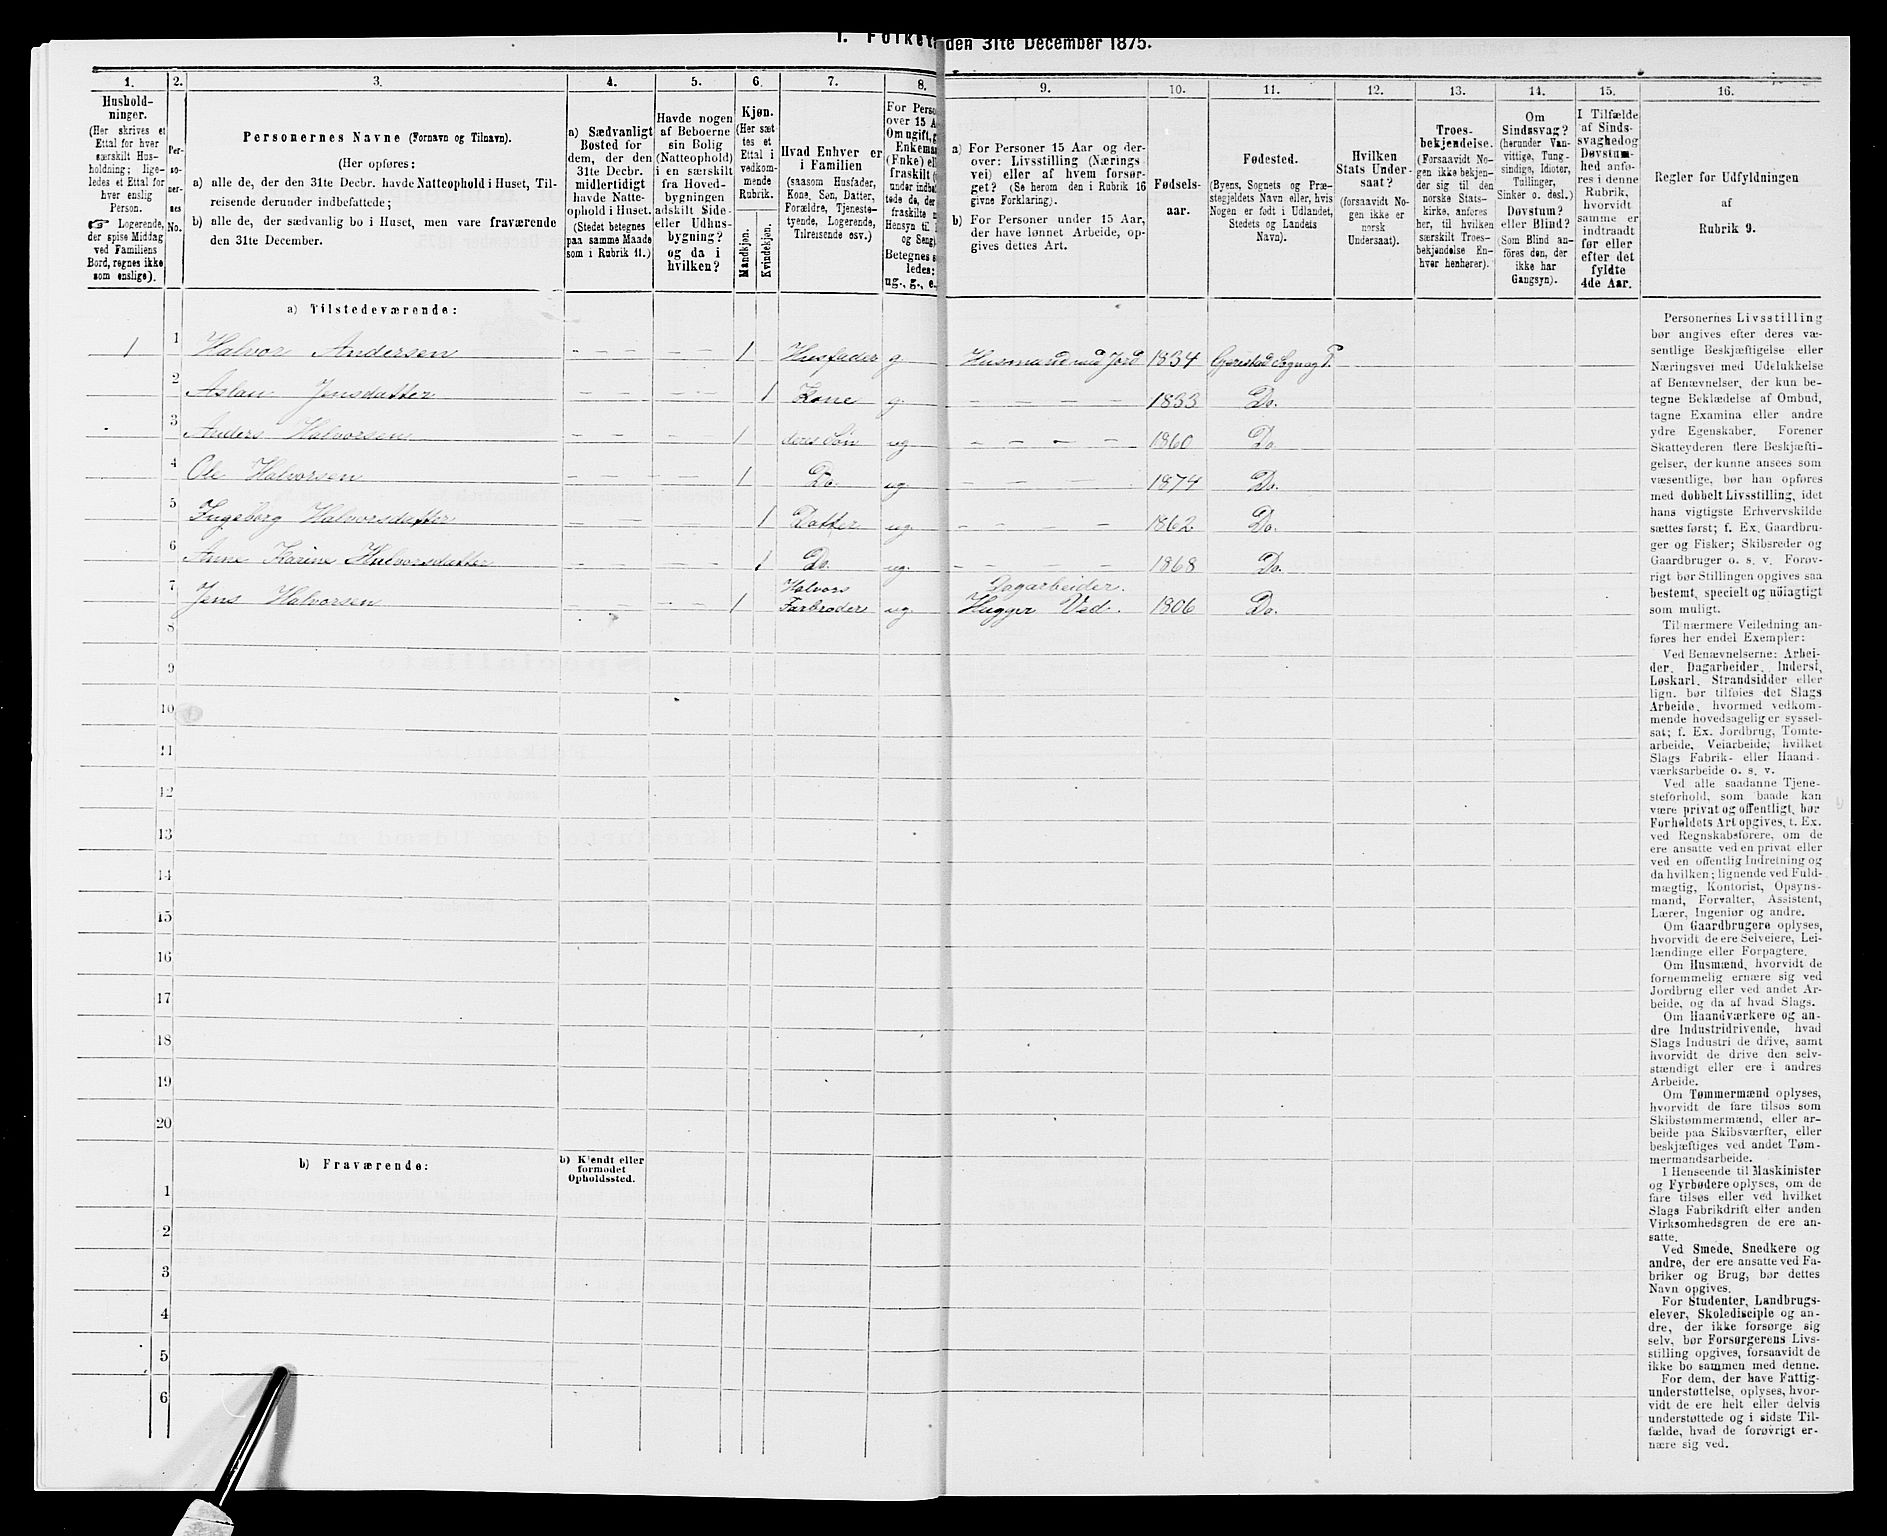 1. Folket
den 31te December 1875.
1.
2.
3.
4.
5.
6.
7.
8.
9.
10.
11.
12.
13.
14.
15.
16.
Hushold-
ninger.
(Her skrives et
Ettal for hver
særskilt Hus-
holdning; lige-
ledes et Ettal for
hver enslig
Person.
☞ Logerende,
der spise Middag
ved Familiens
Bord, regnes ikke
som enslige).
Per-
so-
ner-
nes
No.
Personernes Navne (Fornavn og Tilnavn).
(Her opføres:
a) alle de, der den 31te Decbr. havde Natteophold i Huset, Til-
reisende derunder indbefattede;
b) alle de, der sædvanlig bo i Huset, men vare fraværende
den 31te December.
a) Sædvanligt
Bosted for
dem, der den
31te Decbr.
midlertidigt
havde Natte-
ophold i Huset.
(Stedet betegnes
paa samme Maade
som i Rubrik 11.)
Havde nogen
af Beboerne
sin Bolig
(Natteophold)
i en særskilt
fra Hoved-
bygningen
adskilt Side-
eller Udhus-
bygning?
og da i
hvilken?
Kjøn.
(Her sæt
tes et
Ettal i
vedkom-
mende
Rubrik.
Mandkjøn.
Kvindekjøn.
Hvad Enhver er
i Familien
(saasom Husfader,
Kone, Søn, Datter,
Forældre, Tjeneste-
tyende, Logerende,
Tilreisende osv.)
For Perso
over 15 A
Om ugift, g
Enkeman
(Fnke) ell
fraskilt (
under indbef
tede de, der
fraskilte
Hensyn til
og Seng)
Betegnes s
ledes:
ug., g., e.
a) For Personer 15 Aar og der-
over: Livsstilling (Nærings
vei) eller af hvem forsør-
get? (Se herom den i Rubrik 16
givne Forklaring).
b) For Personer under 15 Aar,
der have lønnet Arbeide, op-
gives dettes Art.
Fødsels-
aar.
Fødested.
(Byens, Sognets og Præ-
stegjeldets Navn eller, hvis
Nogen er født i Udlandet,
Stedets og Landets
Navn).
Hvilken
Stats Under-
saat?
(forsaavidt No-
gen ikke er
norsk
Undersaat).
Troes-
bekjendelse.
(Forsaavidt No-
gen ikke bekjen-
der sig til den
norske Stats-
kirke, anføres
her, til hvilken
særskilt Troes-
bekjendelse En-
hver henhører).
Om
Sindssvag?
(herunder Van-
vittige, Tung-
sindige, Idioter,
Tullinger,
Sinker o. desl.)
Døvstum?
eller Blind?
(Som Blind an-
føres den, der
ikke har
Gangsyn).
I Tilfælde
af Sinds-
svaghed og
Døvstum-
hed anfø-
res i denne
Rubrik,
hvorvidt
samme er
indtraadt
før eller
efter det
fyldte
4de Aar.
Regler for Udfyldningen
af
Rubrik 9.
a) Tilstedeværende:
1 1 Halvor Andersen - - - - - 1 Husfader g Husmand med Jord 1834 Gjerestad Sogn og P.
2 Aslau Jensdatter - - - - - 1 Kone g. - - - - 1833 Do.
3 Anders Halvorsen - - - - - 1 deres Søn ug - - - - 1860 Do
4 Ole Halvorsen - - - - - 1 Do. ug. - - - - 1874 Do.
5 Ingeborg Halvorsdatter - - - - - 1 Datter ug. - - - - 1862. Do.
6 Anne Karine Halvorsdatter - - - - - 1 Do. ug. - - - - 1868 Do.
7 Jens Halvorsen 1 Halvors Farbroder ug. Dagarbeider. Hugger Ved. 1806 Do.
8
9
10
11
12
13
14
15
16
17
18
19
20
b) Fraværende:
b) Kjendt eller
formodet
Opholdssted.
1
2
3
4
5
6
Personernes Livsstilling
bør angives efter deres væ-
sentlige Beskjæftigelse eller
Næringsvei med Udelukkelse
af Benævnelser, der kun be-
tegne Beklædelse af Ombud,
tagne Examina eller andre
ydre Egenskaber. Forener
Skatteyderen flere Beskjæfti-
gelser, der kunne ansees som
væsentlige, bør han opføres
med dobbelt Livsstilling, idet
hans vigtigste Erhvervskilde
sættes først; f. Ex. Gaardbru-
ger og Fisker; Skibsreder og
Gaardbruger o. s. v. Forøv-
rigt bør Stillingen opgives saa
bestemt, specielt og nöiagtigt
som muligt.
Til nærmere Veiledning an-
føres her endel Exempler:
Ved Benævnelserne: Arbei-
der, Dagarbeider, Inderst,
Løskarl, Strandsidder eller
lign. bør tilføies det Slags
Arbeide, hvormed vedkom-
mende hovedsagelig er syssel-
sat; f. Ex. Jordbrug, Tomte-
arbeide, Veiarbeide, hvilket
Slags Fabrik- eller Haand-
værksarbeide o. s. v.
Ved alle saadanne Tjene-
steforhold, som baade kan
være privat og offentligt, bør
Forholdets Art opgives, f. Ex.
ved Regnskabsførere, om de
ere ansatte ved en privat eller
ved en offentlig Indretning og
da hvilken; lignende ved Fuld-
mægtig, Kontorist, Opsyns-
mand, Forvalter, Assistent,
Lærer, Ingeniør og andre.
Om Gaardbrugere oplyses,
hvorvidt de ere Selveiere, Lei-
lændinge eller Forpagtere.
Om Husmænd, hvorvidt de
fornemmelig ernære sig ved
Jordbrug eller ved andet Ar-
beide, og da af hvad Slags.
Om Haandværkere og an-
dre Industridrivende, hvad
Slags Industri de drive, samt
hvorvidt de drive den selv-
stændigt eller ere i andres
Arbeide.
Om Tømmermænd oplyses,
hvorvidt de fare tilsøs som
Skibstømmermænd, eller ar-
beide paa Skibsværfter, eller
beskjæftiges ved andet Tøm-
mermandsarbeide.
I Henseende til Maskinister
og Fyrbødere oplyses, om de
fare tilsøs eller ved hvilket
Slags Fabrikdrift eller anden
Virksomhedsgren de ere an-
satte.
Ved Smede, Snedkere og
andre, der ere ansatte ved Fa-
briker og Brug, bør dettes
Navn opgives.
For Studenter, Landbrugs-
elever, Skoledisciple og an-
dre, der ikke forsørge sig
selv, bør Forsørgerens Livs-
stilling opgives, forsaavidt de
ikke bo sammen med denne.
For dem, der have Fattig-
understøttelse, oplyses, hvor-
vidt de ere helt eller delvis
understøttede og i sidste Til-
fælde, hvad de forøvrigt er-
nære sig ved.